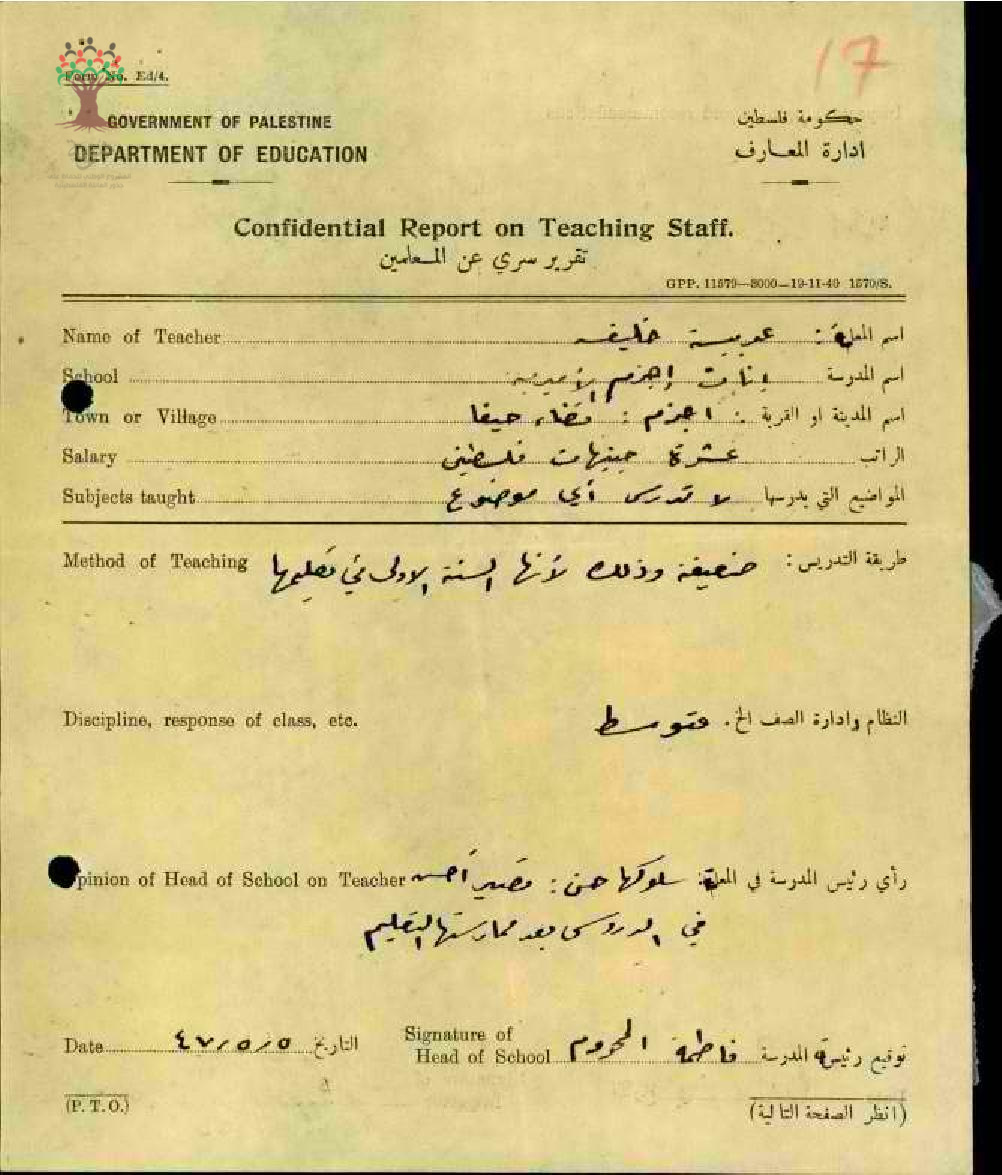 17
Form No. Ed/4.
GOVERNMENT OF PALESTINE
حكومة فلسطين
DEPARTMENT OF EDUCATION
ادارة المعارف
Confidential Report on Teaching Staff.
تقرير سري عن المعلمين
GPP. 11579—3000—19-11-40 1570/S.
Name of Teacher خليفه اسم المعلمة :
School بنات إجزم الأميرية اسم المدرسة
Town or Village اجزم : قضاء حيفا اسم المدينة او القرية :
Salary عشرة جنيهات فلسطيني الراتب
Subjects taught لا تدرس أي موضوع المواضيع التي يدرسها
Method of Teaching ضعيفة وذلك لأنها السنة الاولى في تعليمها طريقة التدريس :
Discipline, response of class, etc. متوسط النظام وادارة الصف الخ.
Opinion of Head of School on Teacher سلوكها حسن : تصير أحسن رأي رئيس المدرسة في المعلمة
في الدروس بعد ممارستها التعليم
Date ٤٧/٥/٥ التاريخ Signature of Head of School فاطمة توقيع رئيسة المدرسة
(P. T. O.)
(انظر الصفحة التالية)